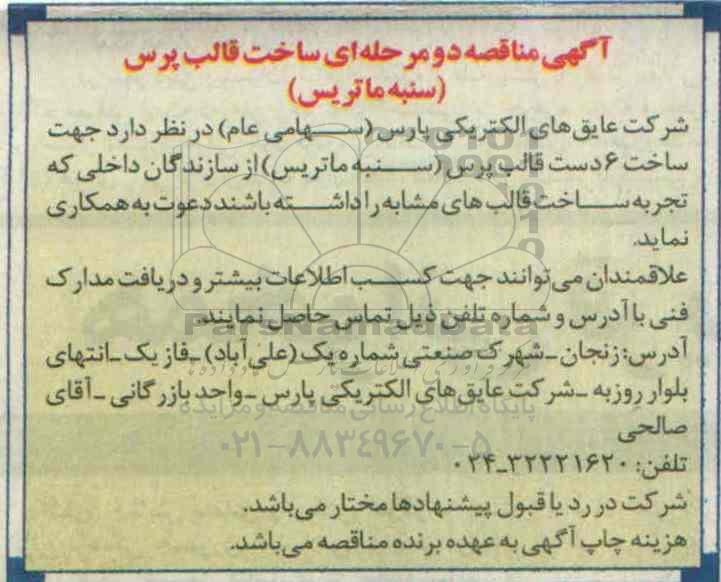 آگهی مناقصه دو مرحله‌ای ساخت قالب پرس
(سنبه ماتریس)
شرکت عایق‌های الکتریکی پارس (سهامی عام) در نظر دارد جهت
ساخت ۶ دست قالب پرس (سنبه ماتریس) از سازندگان داخلی که
تجربه ساخت قالب‌های مشابه را داشته باشند دعوت به همکاری
نماید.
علاقمندان می‌توانند جهت کسب اطلاعات بیشتر و دریافت مدارک
فنی با آدرس و شماره تلفن ذیل تماس حاصل نمایند.
ParsNamadData
آدرس: زنجان ـ شهرک صنعتی شماره یک (علی‌آباد) ـ فاز یک ـ انتهای
بلوار روزبه ـ شرکت عایق‌های الکتریکی پارس ـ واحد بازرگانی ـ آقای
پایگاه اطلاع رسانی مناقصه و مزایده
صالحی
۰۲۱-۸۸۳۴۹۶۷۰-۵
تلفن: ۳۲۲۲۱۶۲۰-۰۲۴
شرکت در رد یا قبول پیشنهادها مختار می‌باشد.
هزینه چاپ آگهی به عهده برنده مناقصه می‌باشد.